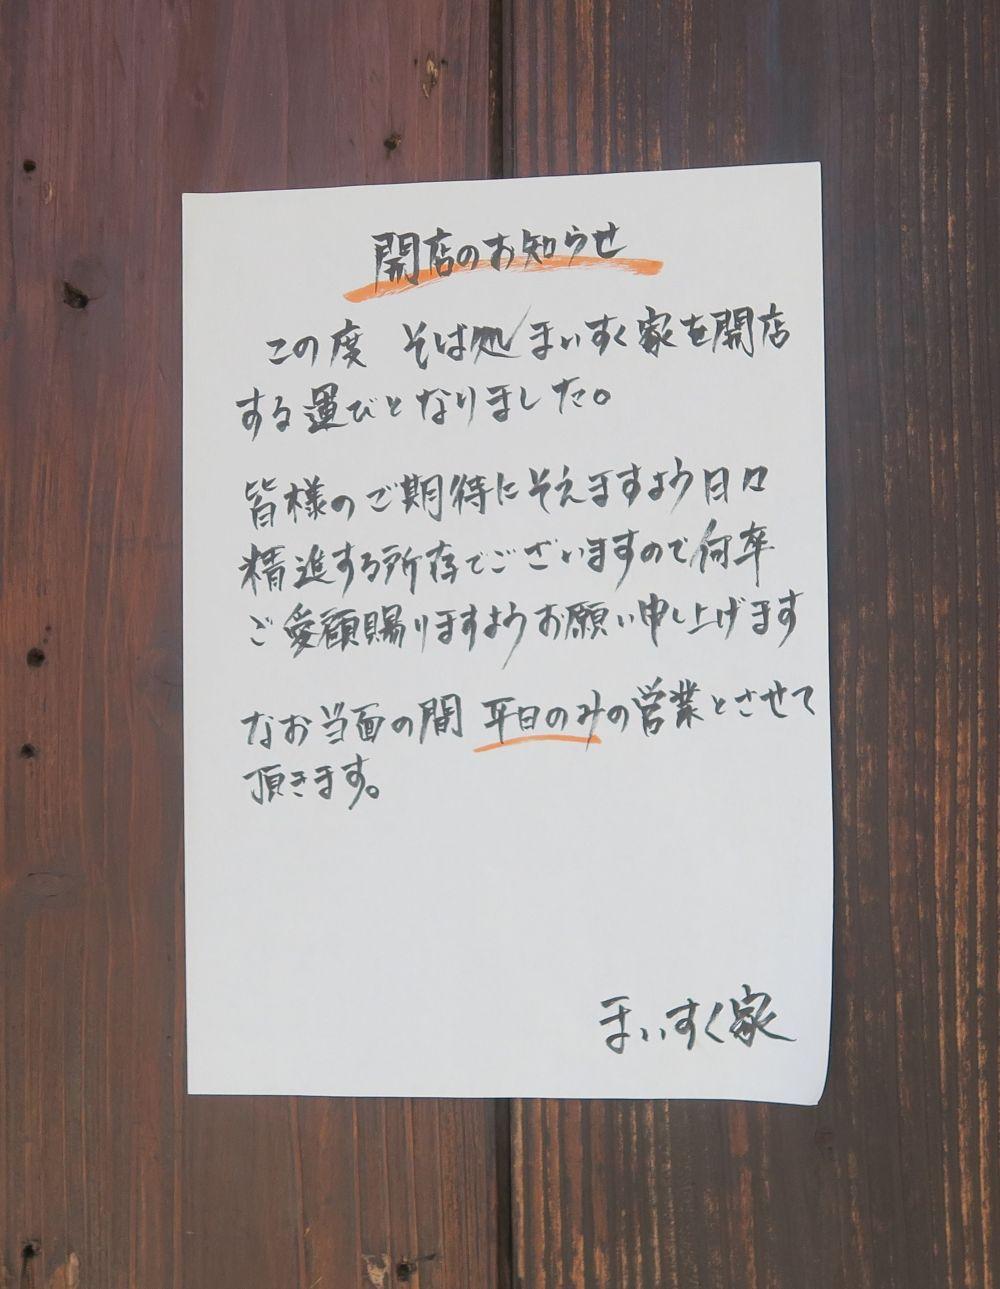 開店のお知らせ
この度 そば処 まいすく家を開店
する運びとなりました。
皆様のご期待にそえますよう日々
精進する所存でございますので何卒
ご愛顧賜りますようお願い申し上げます
なお当面の間 平日のみの営業とさせて
頂きます。
まいすく家